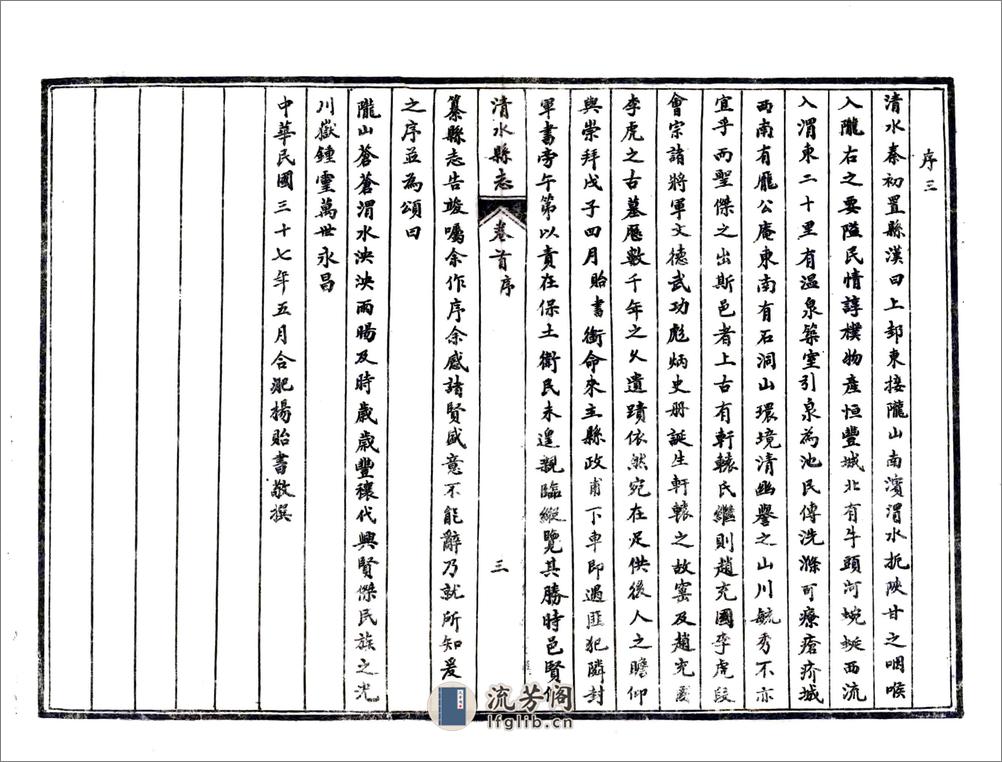 序三
清水秦初置縣漢曰上邽東接隴山南濱渭水扼陝甘之咽喉
入隴右之要隘民情諄樸物產恒豐城北有牛頭河蜿蜒西流
入渭東二十里有温泉築室引泉為池民傳洗滌可療瘡疥城
西南有龐公庵東南有石洞山環境清幽譽之山川毓秀不亦
宜乎而聖傑之出斯邑者上古有軒轅氏繼則趙充國李虎段
會宗諸將軍文德武功彪炳史册誕生軒轅之故窰及趙充國
李虎之古墓歷數千年之久遺蹟依然宛在足供後人之瞻仰
與崇拜戊子四月貽書銜命來主縣政甫下車即遇匪犯隣封
軍書旁午第以責在保土衛民未遑親臨縱覽其勝時邑賢
清水縣志
卷首序
三
纂縣志告竣囑余作序余感諸賢盛意不能辭乃就所知爰
之序並為頌曰
隴山蒼蒼渭水泱泱雨暘及時歲歲豐穰代興賢傑民族之光
川嶽鍾靈萬世永昌
中華民國三十七年五月合淝楊貽書敬撰
流芳閣
lfglib.cn